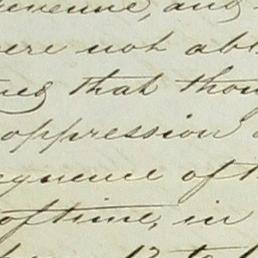 and
ere not abl
that thou
oppression
equence of t
of time, in